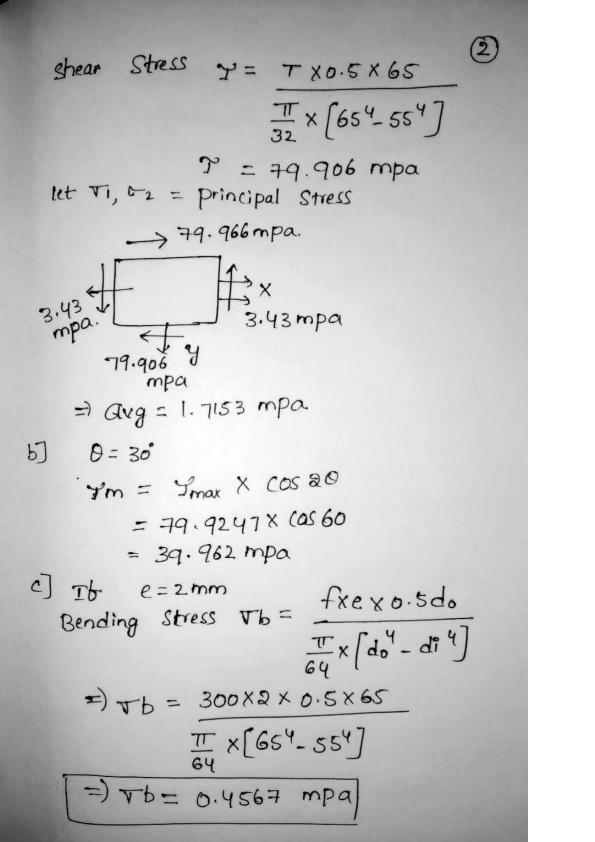 ②
Shear Stress τ = T x 0.5 x 65
π/32 x [65⁴ - 55⁴]
τ = 79.906 mpa
let σ1, σ2 = principal Stress
→ 79.966 mpa.
x
3.43 mpa.
3.43 mpa
79.906 y
mpa
=) avg = 1.7153 mpa
b] θ = 30°
τm = τmax x cos 2θ
= 79.9247 x cos 60
= 39.962 mpa
c] If e = 2 mm
Bending Stress σb = fxe x 0.5do
π/64 x [do⁴ - di⁴]
=) σb = 300 x 2 x 0.5 x 65
π/64 x [65⁴ - 55⁴]
=) σb = 0.4567 mpa